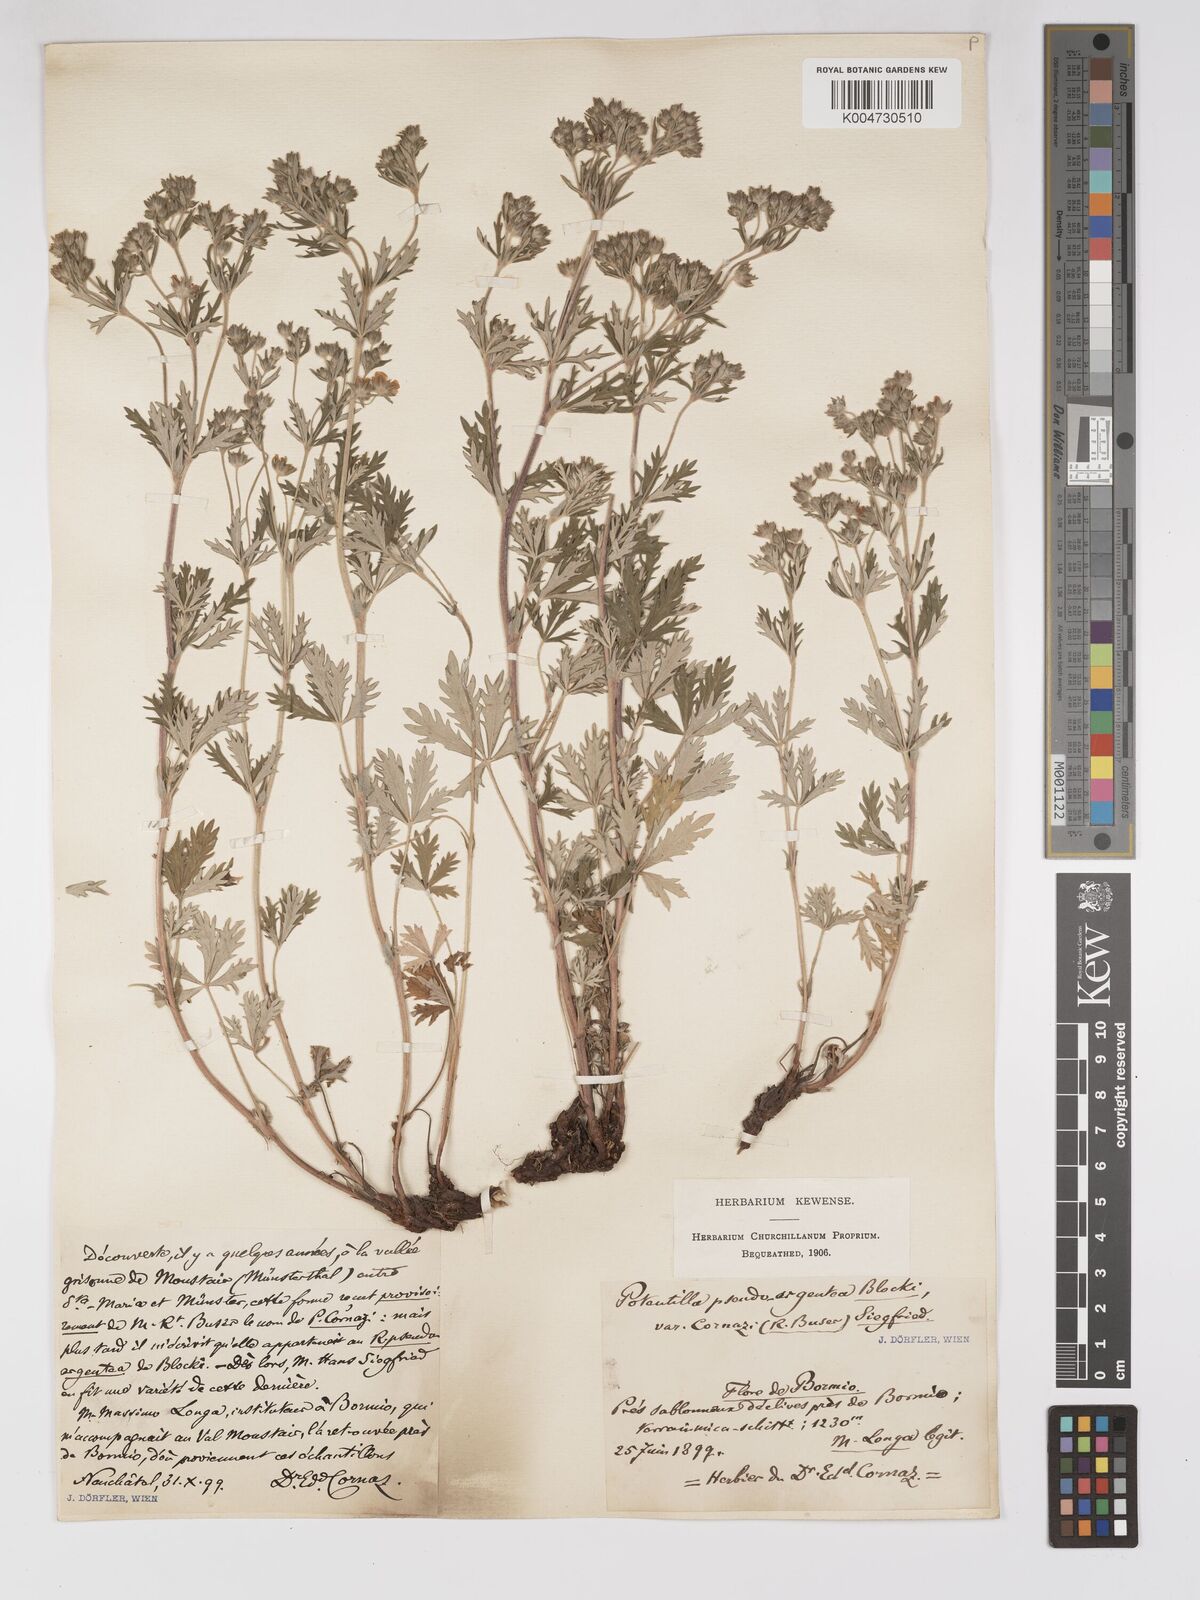 P
ROYAL BOTANIC GARDENS KEW
K004730510
HERBARIUM KEWENSE.
HERBARIUM CHURCHILLANUM PROPRIUM.
BEQUEATHED, 1906.
Découverte, il y a quelques années, à la vallée
grisonne de Moustair (Münsterthal) entre
Sta-Maria et Münster, cette forme reçut provisoi-
rement de M. Rt. Buser le nom de P. Cornazi: mais
plus tard il m'écrivit qu'elle appartenait au P. pseudo-
argentea de Blocki. – Dès lors, M. Hans Siegfried
en fit une variété de cette dernière.
Mr Massimo Longa, instituteur à Bormio, qui
m'accompagnait au Val Moustair, l'a retrouvée près
de Bormio, d'où proviennent ces échantillons
Neuchâtel, 31.X.99. Dr. Edd. Cornaz.
J. DÖRFLER, WIEN
Potentilla pseudo-argentea Blocki,
var. Cornazi (R. Buser) Siegfried.
J. DÖRFLER, WIEN
Flore de Bormio.
Prés sablonneux déclives près de Bormio;
terrain mica-schiste; 1230m
25 Juin 1899. M. Longa legit.
= Herbier du Dr. Edd Cornaz. =
inches
centimeters
Density
Don Williams
M001122
Royal Botanic Gardens
Kew
0 1 2 3 4 5 6 7 8 9 10
copyright reserved